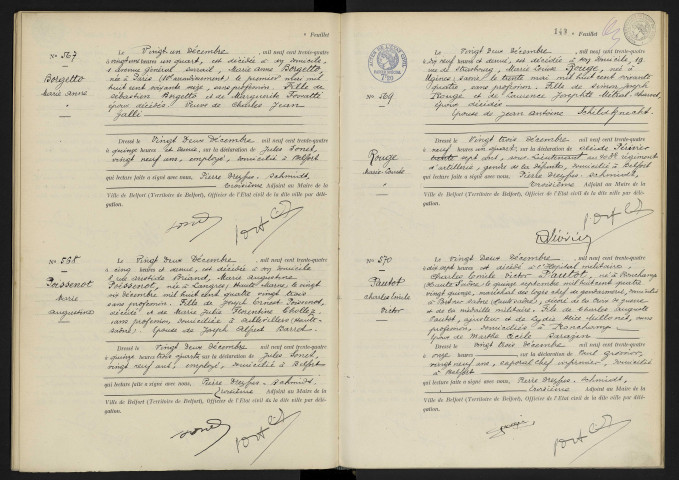 Feuillet
N° 567
Borgetto
Marie Anne
Le Vingt un Décembre, mil neuf cent trente-quatre
à vingt heures un quart, est décédée à son domicile,
1 Avenue Général Sarrail, Marie Anne Borgetto,
née à Paris arrondissement) le premier mai mil
huit cent soixante sept, sans profession. Fille de
Sébastien Borgetto et de Marguerite
époux décédés. Veuve de Charles Jean
Jallé
Dressé le Vingt Deux Décembre, mil neuf cent trente-quatre
à quinze heures et demie, sur la déclaration de Jules Sonet,
vingt neuf ans, employé, domicilié à Belfort
qui lecture faite a signé avec nous, Pierre Dreyfus-Schmidt,
Troisième Adjoint au Maire de la
Ville de Belfort (Territoire de Belfort), Officier de l'Etat civil de la dite ville par délé-
gation.
N° 568
Poissenot
Marie
Augustine
Le Vingt Deux Décembre, mil neuf cent trente-quatre
à cinq heures et demie, est décédée à son domicile
rue Aristide Briand, Marie Augustine
Poissenot, née à Langres, Haute-Marne, le vingt
un décembre mil huit cent quatre vingt trois
sans profession. Fille de Joseph Ernest Poissenot,
décédé et de Marie Julie Florentine Chollez,
sans profession, domiciliée à (Haute-
Saône). Epouse de Joseph Alfred Barret.
Dressé le Vingt Deux Décembre, mil neuf cent trente-quatre
à quinze heures trois quarts, sur la déclaration de Jules Sonet,
vingt neuf ans, employé, domicilié à Belfort
qui lecture faite a signé avec nous, Pierre Dreyfus-Schmidt,
Troisième Adjoint au Maire de la
Ville de Belfort (Territoire de Belfort), Officier de l'Etat civil de la dite ville par délé-
gation.
149 Feuillet
N° 569
Rouge
Marie Louise
Le Vingt Deux Décembre, mil neuf cent trente-quatre
à dix neuf heures, est décédée à son domicile, 19
rue de Strasbourg, Marie Louise Rouge, née à
Ugines, Savoie le trente mai mil huit cent soixante
quatre, sans profession. Fille de Simon Joseph
Rouge et de Laurence Josephte
époux décédés
Epouse de Jean Antoine Schildknecht.
Dressé le Vingt trois Décembre, mil neuf cent trente-quatre
à neuf heures un quart, sur la déclaration de
trente sept ans, sous-Lieutenant au régiment
d'artillerie, gendre de la défunte, domicilié à Belfort
qui lecture faite a signé avec nous, Pierre Dreyfus-Schmidt,
Troisième Adjoint au Maire de la
Ville de Belfort (Territoire de Belfort), Officier de l'Etat civil de la dite ville par délé-
gation.
N° 570
Pautot
Charles Emile
Victor
Le Vingt Deux Décembre, mil neuf cent trente-quatre
à dix sept heures, est décédé à l'Hôpital militaire,
Charles Emile Victor Pautot, né à Ronchamp
(Haute Saône) le quinze septembre mil huit cent quatre
vingt quinze, maréchal des logis chef de gendarmerie, domicilié
à (Haute Saône), décoré de la Croix de guerre
et de la médaille militaire. Fils de Charles Auguste
Pautot, et de sans
profession, domiciliés à Ronchamp.
Epoux de Marthe Cécile Sarazin
Dressé le Vingt trois Décembre, mil neuf cent trente-quatre
à onze heures, sur la déclaration de Paul
vingt neuf ans, caporal chef infirmier, domicilié
à Belfort
qui lecture faite a signé avec nous, Pierre Dreyfus-Schmidt,
Troisième Adjoint au Maire de la
Ville de Belfort (Territoire de Belfort), Officier de l'Etat civil de la dite ville par délé-
gation.